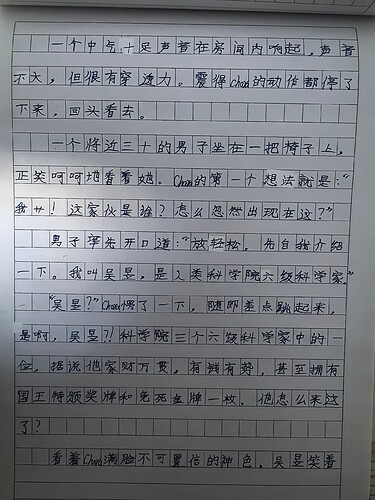 一个中气十足声音在房间内响起，声音
不大，但很有穿透力。震得Chara的动作都停了
下来，回头看去。
一个将近三十的男子坐在一把椅子上，
正笑呵呵地看着她。Chara的第一个想法就是：“
我艹！这家伙是谁？怎么忽然出现在这？”
男子率先开口道：“放轻松，先自我介绍
一下。我叫吴昱，是人类科学院六级科学家”
“吴昱？”Chara愣了一下，随即差点跳起来，
是啊，吴昱？！科学院三个六级科学家中的一
位，据说他家财万贯，有钱有势，甚至拥有
国王特颁奖牌和免死金牌一枚。他怎么来这
了？
看着Chara满脸不可置信的神色，吴昱笑着